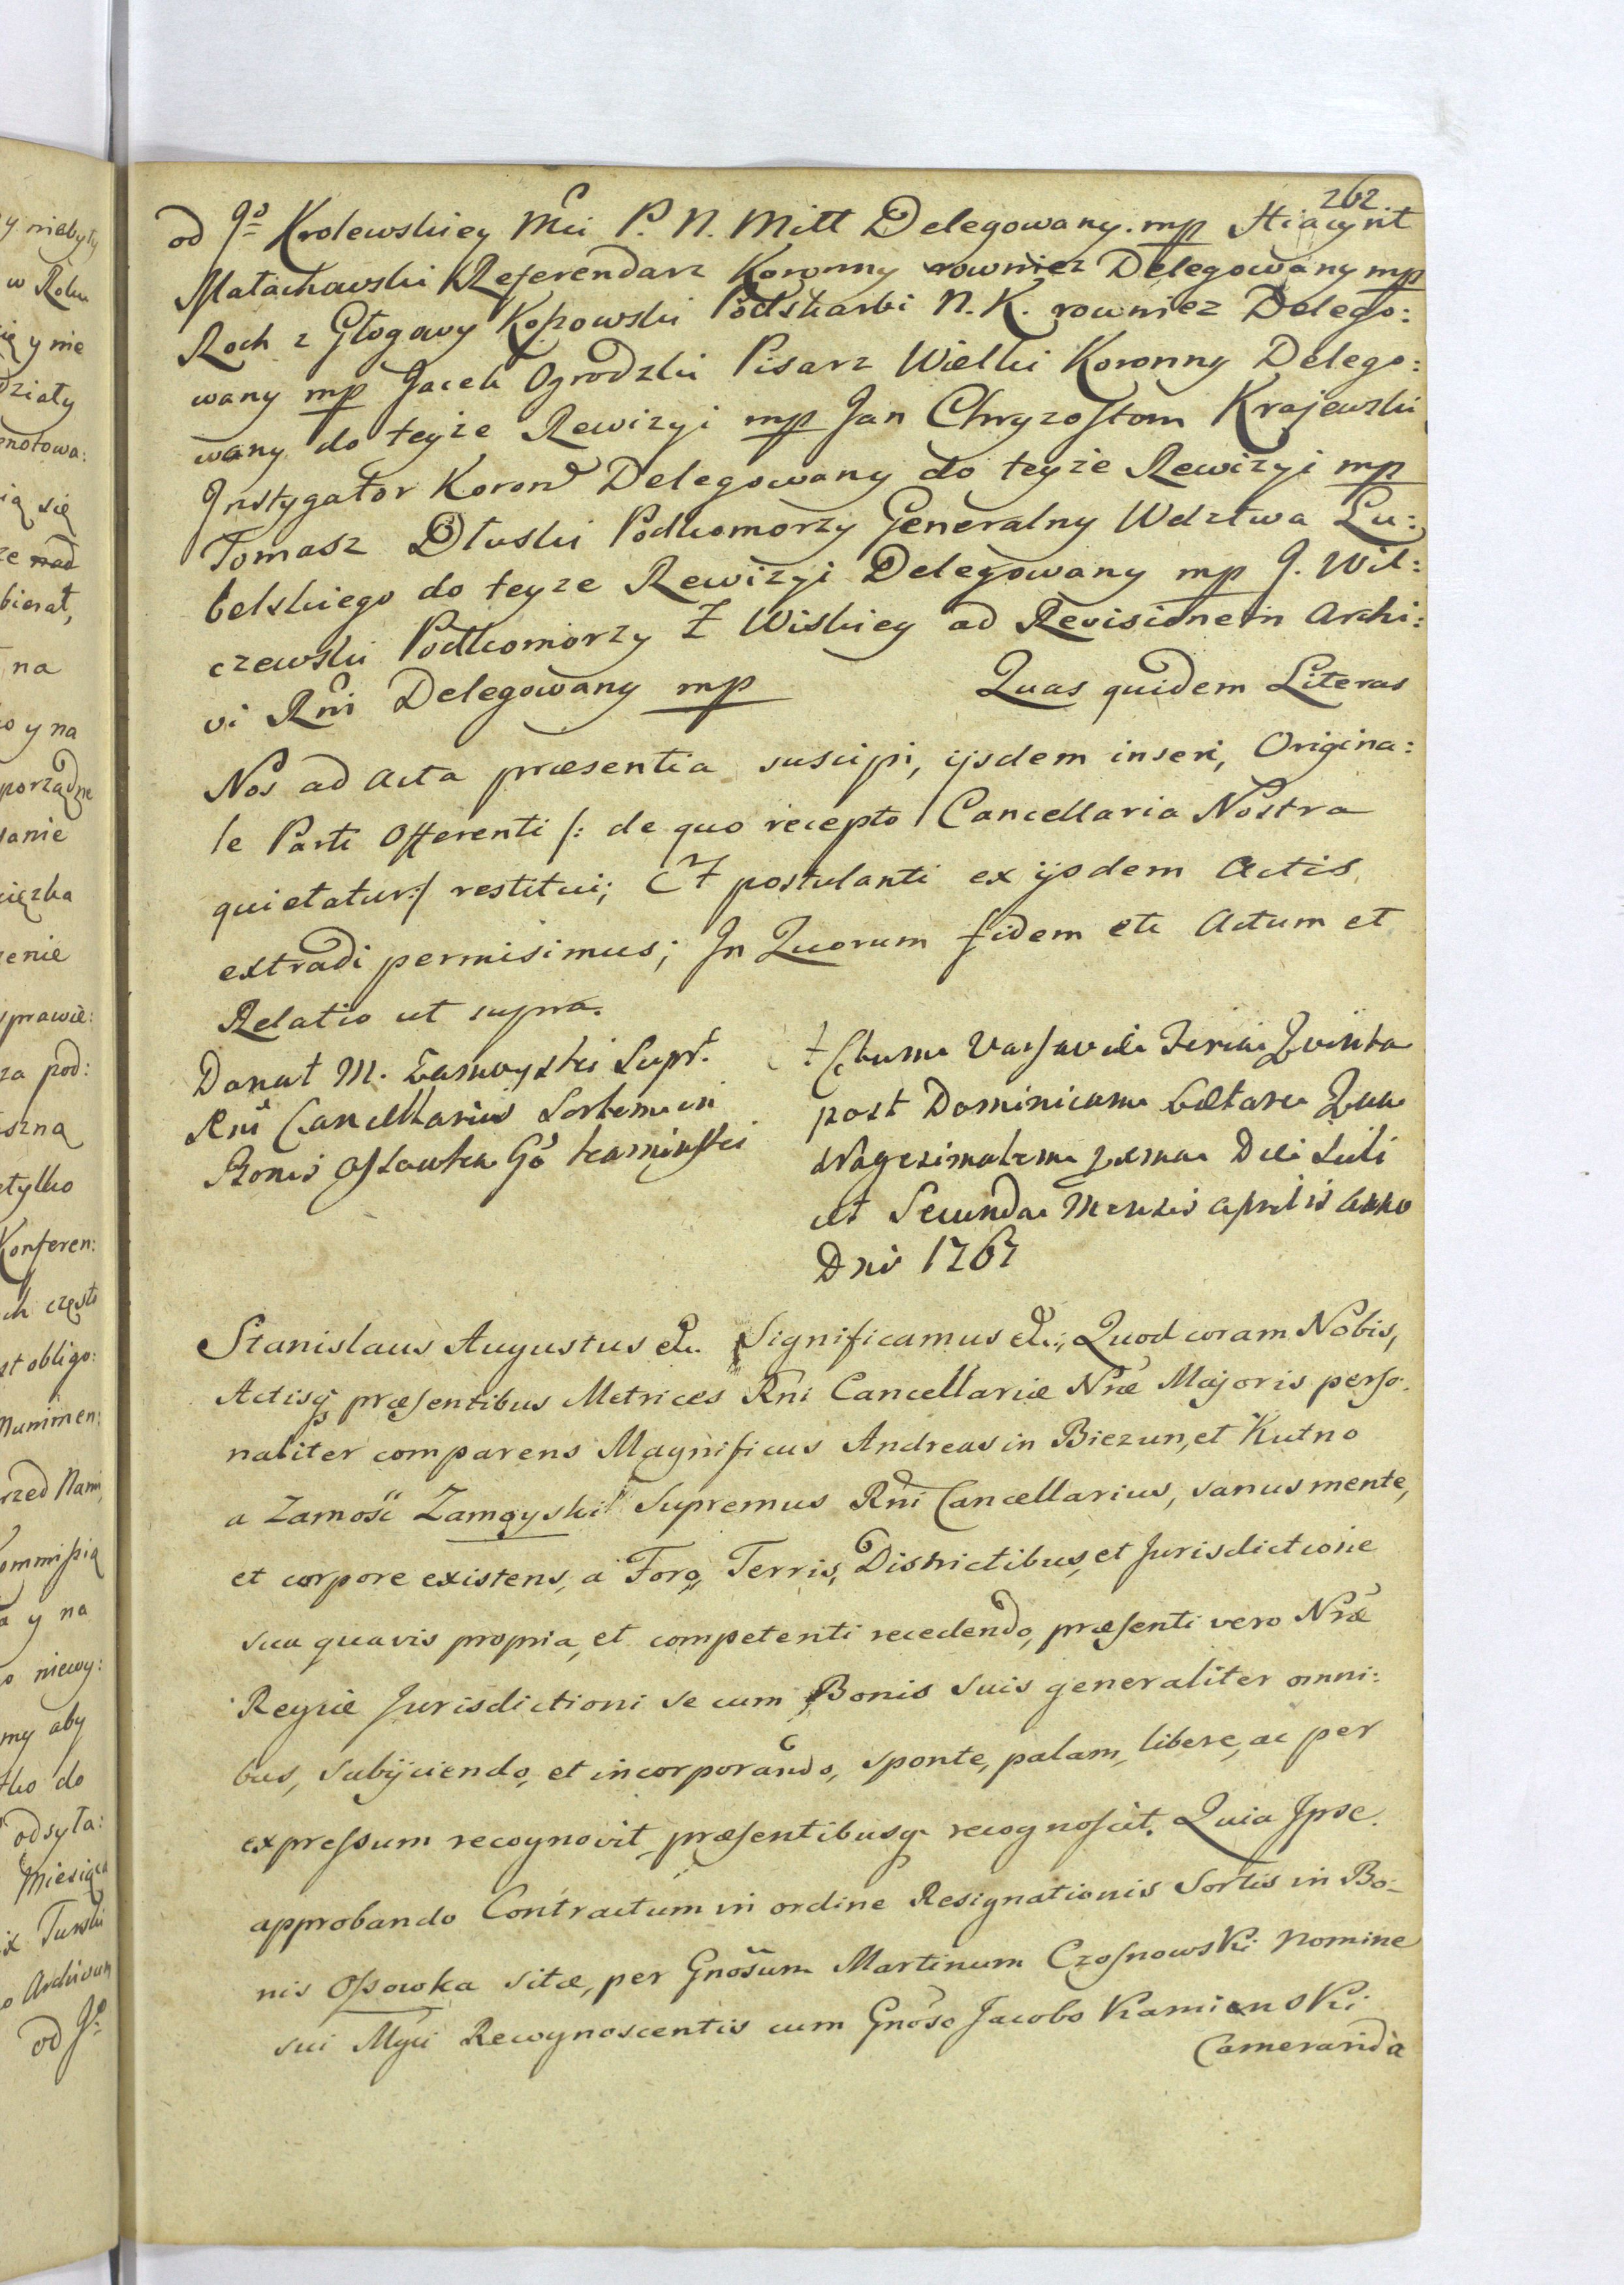 262
od Jo Krolewskiey Mci P. N. Mitt Delegowany. mp Hiacynt
Małachowski Referendarz Koronny rowniez Delegowany mp
Roch z Głogowy Kossowski Podskarbi N. K. rowniez Delego:
wany mp Jacek Ogrodzki Pisarz Wielki Koronny Delego:
wany do teyze Rewizyi mp Jan Chryzostom Krajewski
Instygator Koron Delegowany do teyże Rewizyi mp
Tomasz Dłuski Podkomorzy Generalny Wdztwa Lu:
belskiego do teyze Rewizyi Delegowany mp J. Wil:
czewski Podkomorzy Z Wiskiey ad Revisionem Archi:
vi Rni Delegowany mp Quas quidem Literas
Nos ad Acta præsentia suscipi, ijsdem inseri, Origina:
le Parti Offerenti /: de quo recepto Cancellaria Nostra
quietatur:/ restitui; Et postulanti ex ijsdem Actis
extradi permisimus; In Quorum fidem etc Actum et
Relatio ut supra.
Donat M. Zamoyski Supr.
Rni Cancellarius Sortem in
Bonis Ossowka Go Kaminski
Actum Varsaviæ Feria Quinta
post Dominicam Lætare Qua
dragesimalem
ut Secunda Mensis Aprilis Anno
Dni 1767
Stanislaus Augustus etc. Significamus etc; Quod coram Nobis,
Actisq præsentibus Metrices Rni Cancellariæ Nræ Majoris perso:
naliter comparens Magnificus Andreas in Biezun, et Kutno
a Zamość Zamoyski Supremus Rni Cancellarius, sanus mente,
et corpore existens, a Foro, Terris, Districtibus, et Jurisdictione
sua quavis propria, et competenti recedendo, præsenti vero Nræ
Regiæ Jurisdictioni se cum Bonis suis generaliter omni:
bus, subijciendo, et incorporando, sponte, palam, libere, ac per
expressum recognovit præsentibusq recognoscit. Quia Ipse
approbando Contractum in ordine Resignationis Sortis in Bo:
nis Ossowka sitæ, per Gnosum Martinum Czosnowski Nomine
sui Mgci Recognoscentis cum Gnoso Jacobo Kamienski
Cameranda